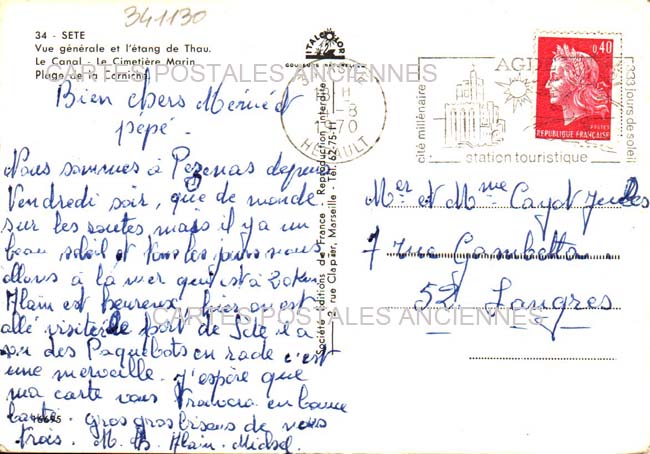 341130
34 - SETE
Vue générale et l'étang de Thau.
Le Canal - Le Cimetière Marin
Plage de la Corniche
ITALCOLOR
COULEURS NATURELLES
CARTES POSTALES ANCIENNES
Bien chers Mémé et
pépé.
Nous sommes à Pezenas depuis
Vendredi soir, que de monde
sur les routes mais il y a un
beau soleil et tous les jours nous
allons à la mer qui est à 20 Km
Alain est heureux, hier on est
allé visiter le port de Sète il a
vu des Paquebots en rade c'est
une merveille. J'espère que
ma carte vous trouvera en bonne
santé. gros gros bisous de nous
trois. M. Th. Alain. Michel.
16695
Société "Editions de France" Reproduction Interdite
2, rue Clapier, Marseille Tél. 62-75-11
H
-8
1970
HERAULT
AGDE
cité millénaire
station touristique
jours de soleil
0,40
POSTES
REPUBLIQUE FRANÇAISE
Mer et Mme Cayot Jules
7 rue Gambetta
52. Langres
CARTES POSTALES ANCIENNES